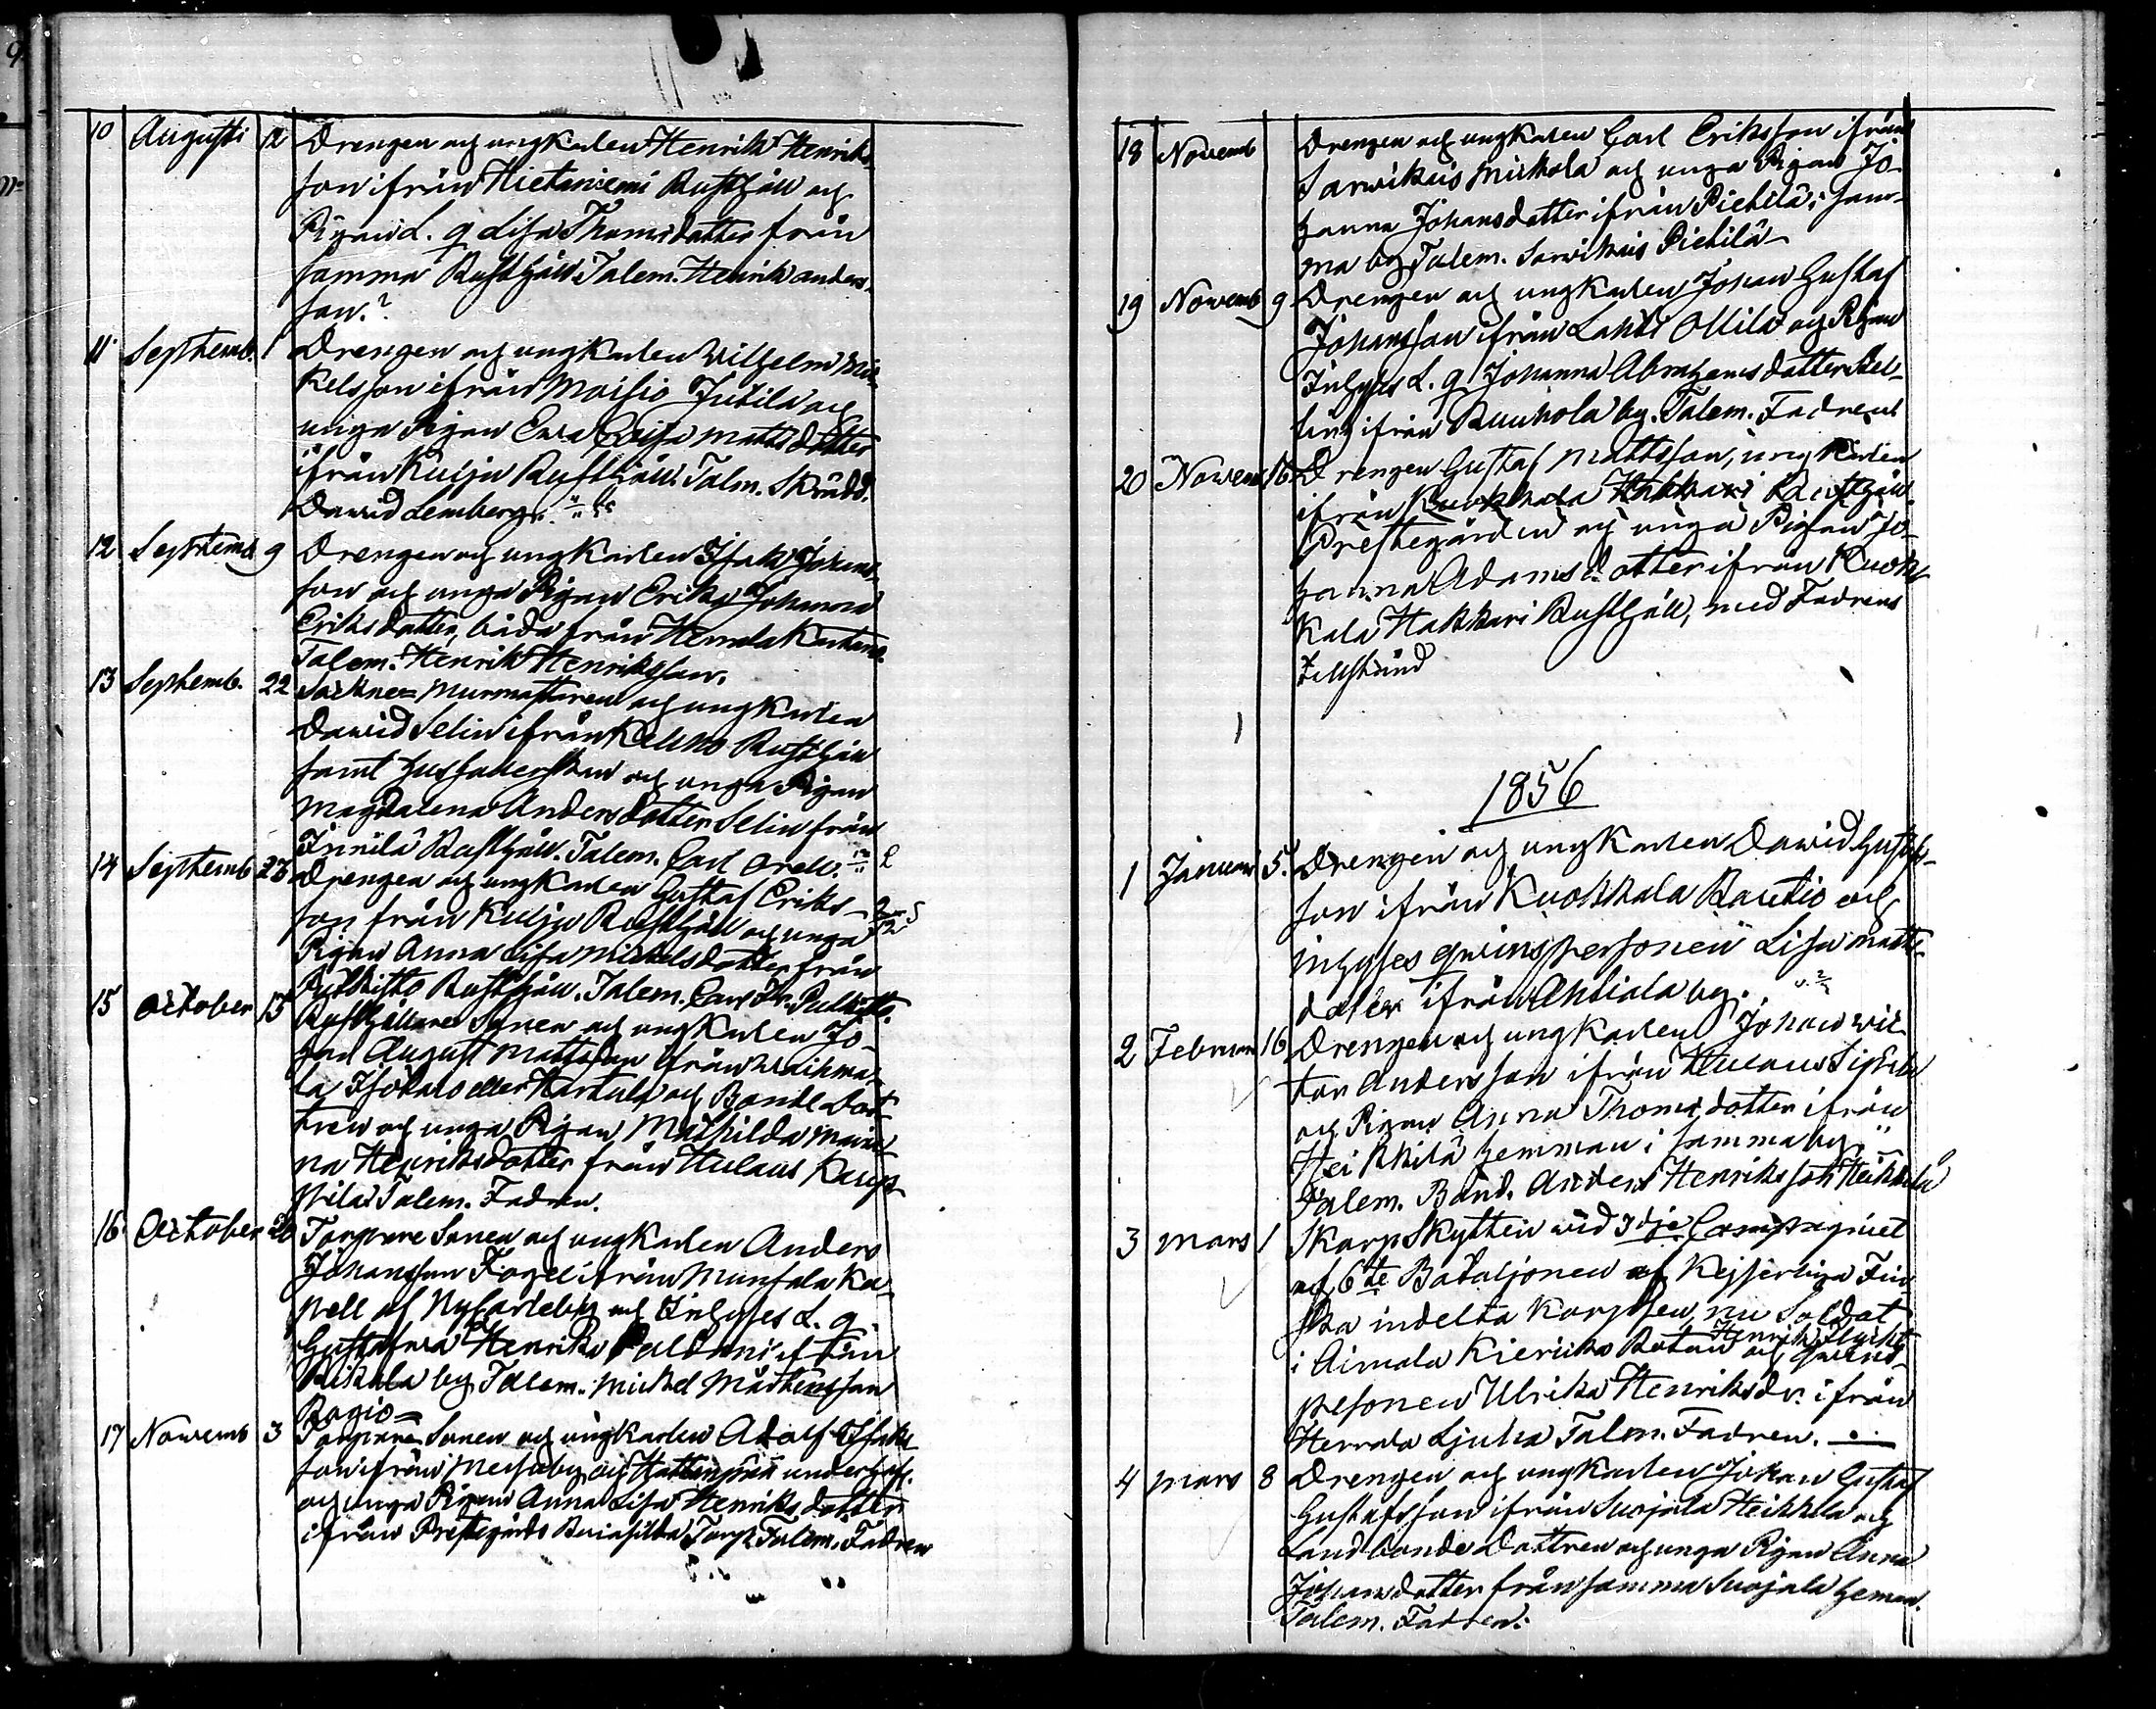 10 Augusti 12 Drengen och ungkarlen Henrik Henriks-
son ifrån Hietaniemi Rusthåll och
Pigan L. q Lisa Thomasdotter från
samma Rusthåll Talem. Henrik anders-
son.
11 Septemb. 1 Drengen och ungkarlen Wilhelm Mi-
kelsson ifrån Moisio Jutila och
unga Pigan Ewa Lisa Mattsdotter
ifrån Kulju Rusthåll. Talm. Skrädd.
Dawid Lemberg.
12 Septemb 9 Drengen och ungkarlen Isak Johans-
son och unga Pigan Erika Johanna
Eriksdotter, båda från Herrala
Talem. Henrik Henriksson.
13 Septemb. 22 Sockne Murmästaren och ungkarlen
Dawid Selin ifrån Kelkno Rusthåll
samt och unga Pigan
Magdalena Andersdotter Selin från
Rusthåll. Talem. Carl Orell.
14 Septemb 23 Drengen och ungkarlen Gustaf Eriks-
son från Kulju Rusthåll och unga
Pigan Anna Lisa Mickelsdotter från
Pulkitto Rusthåll. Talem. Pulkitto.
15 October 13 Rusthållare Sonen och ungkarlen Jo-
han August Mattsson ifrån Waihma-
la och Bonde Dot-
tren och unga Pigan Mathilda Maria-
na Henriksdotter från Hulaus Kaup-
pila Talem. Fadren.
16 October 20 Torpare Sonen och ungkarlen Anders
Johansson ifrån Munsala Ka-
pell af NyCarleby och Inhyses L. q.
Gustafwa Henrika ifrån
by Talem. Mickel Mårtensson
17 Nowemb 3 Torpare Sonen och ungkarlen Adolf Isaks-
son ifrån by och
och unga Pigan Anna Lisa Henriksdotter
ifrån Prestegårds Torp. Talem. Fadren
18 Novemb Drengen och ungkarlen Carl Eriksson ifrån
Sarwikais Mickola och unga Pigan Jo-
hanna Johansdotter ifrån Pietilä i sam-
ma by Talem. Sarwikais Pietilä
19 Nowemb 9 Drengen och ungkarlen Johan Gustaf
Johansson ifrån Lahti Ollila och Pigan
Inhyses L. q Johanna Abrahamsdotter
ifrån by. Talem. Fadren
20 Nowem 16 Drengen Gustaf Mattsson, ungkarlen
ifrån Kuokkala Hakkari Rusthåll
Prestegården och unga Pigan Jo-
hanna Adamsdotter ifrån Kuok-
kala Hakkari Rusthåll, med Fadrens
Tillstånd
1856
1 Januari 5. Drengen och ungkarlen Dawid Gustafs-
son ifrån Kuokkala Rautio och
inhyses qwinspersonen Lisa Matts-
dotter ifrån Ahtiala by.
2 Februari 16 Drengen och ungkarlen Johan Wic-
tor Andersson ifrån Hulaus
och Pigan Anna Thomasdotter ifrån
Heikkilä hemman i samma by.
Talem. Bond. Anders Henriksson Heikkilä
3 Mars 1 Skarpskytten wid 3dje Compagniet
af 6te Bataljonen af Kejserliga Fin-
ska indelta korpsen, nu Soldat
Henrik Flycht
i Aimala Kiericka Rotan och qwins-
pesonen Ulrika Henriksdr. ifrån
Herrala Ljuha Talm. Fadren.
4 Mars 8 Drengen och ungkarlen Johan Gustaf
Gustafsson ifrån Suojala Heikkila och
Landbonde Dottren och unga Pigan Anna
Johansdotter från samma Suojala heman.
Talem. Fadren.